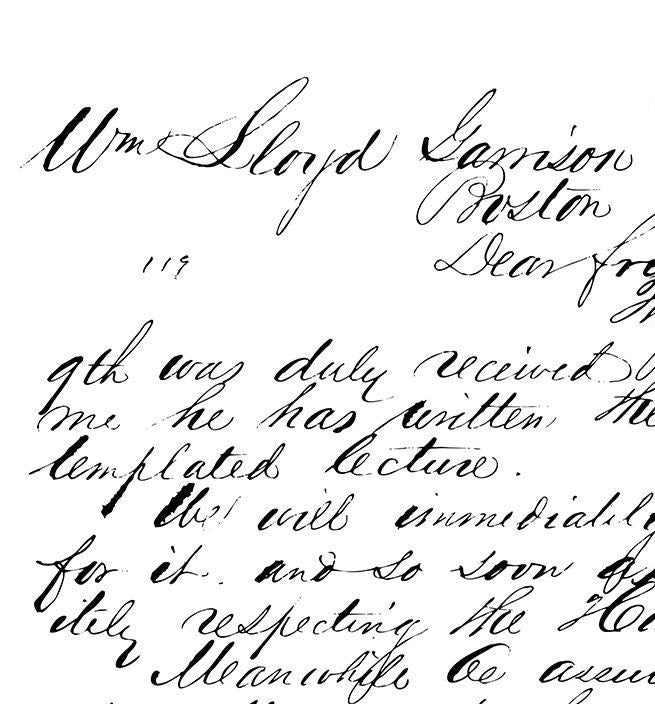 Wm Lloyd Garrison
Boston
119
Dear
9th was duly received
me he has written the
templated lecture.
We will immediately
for it. and so soon
itely respecting the
Meanwhile be